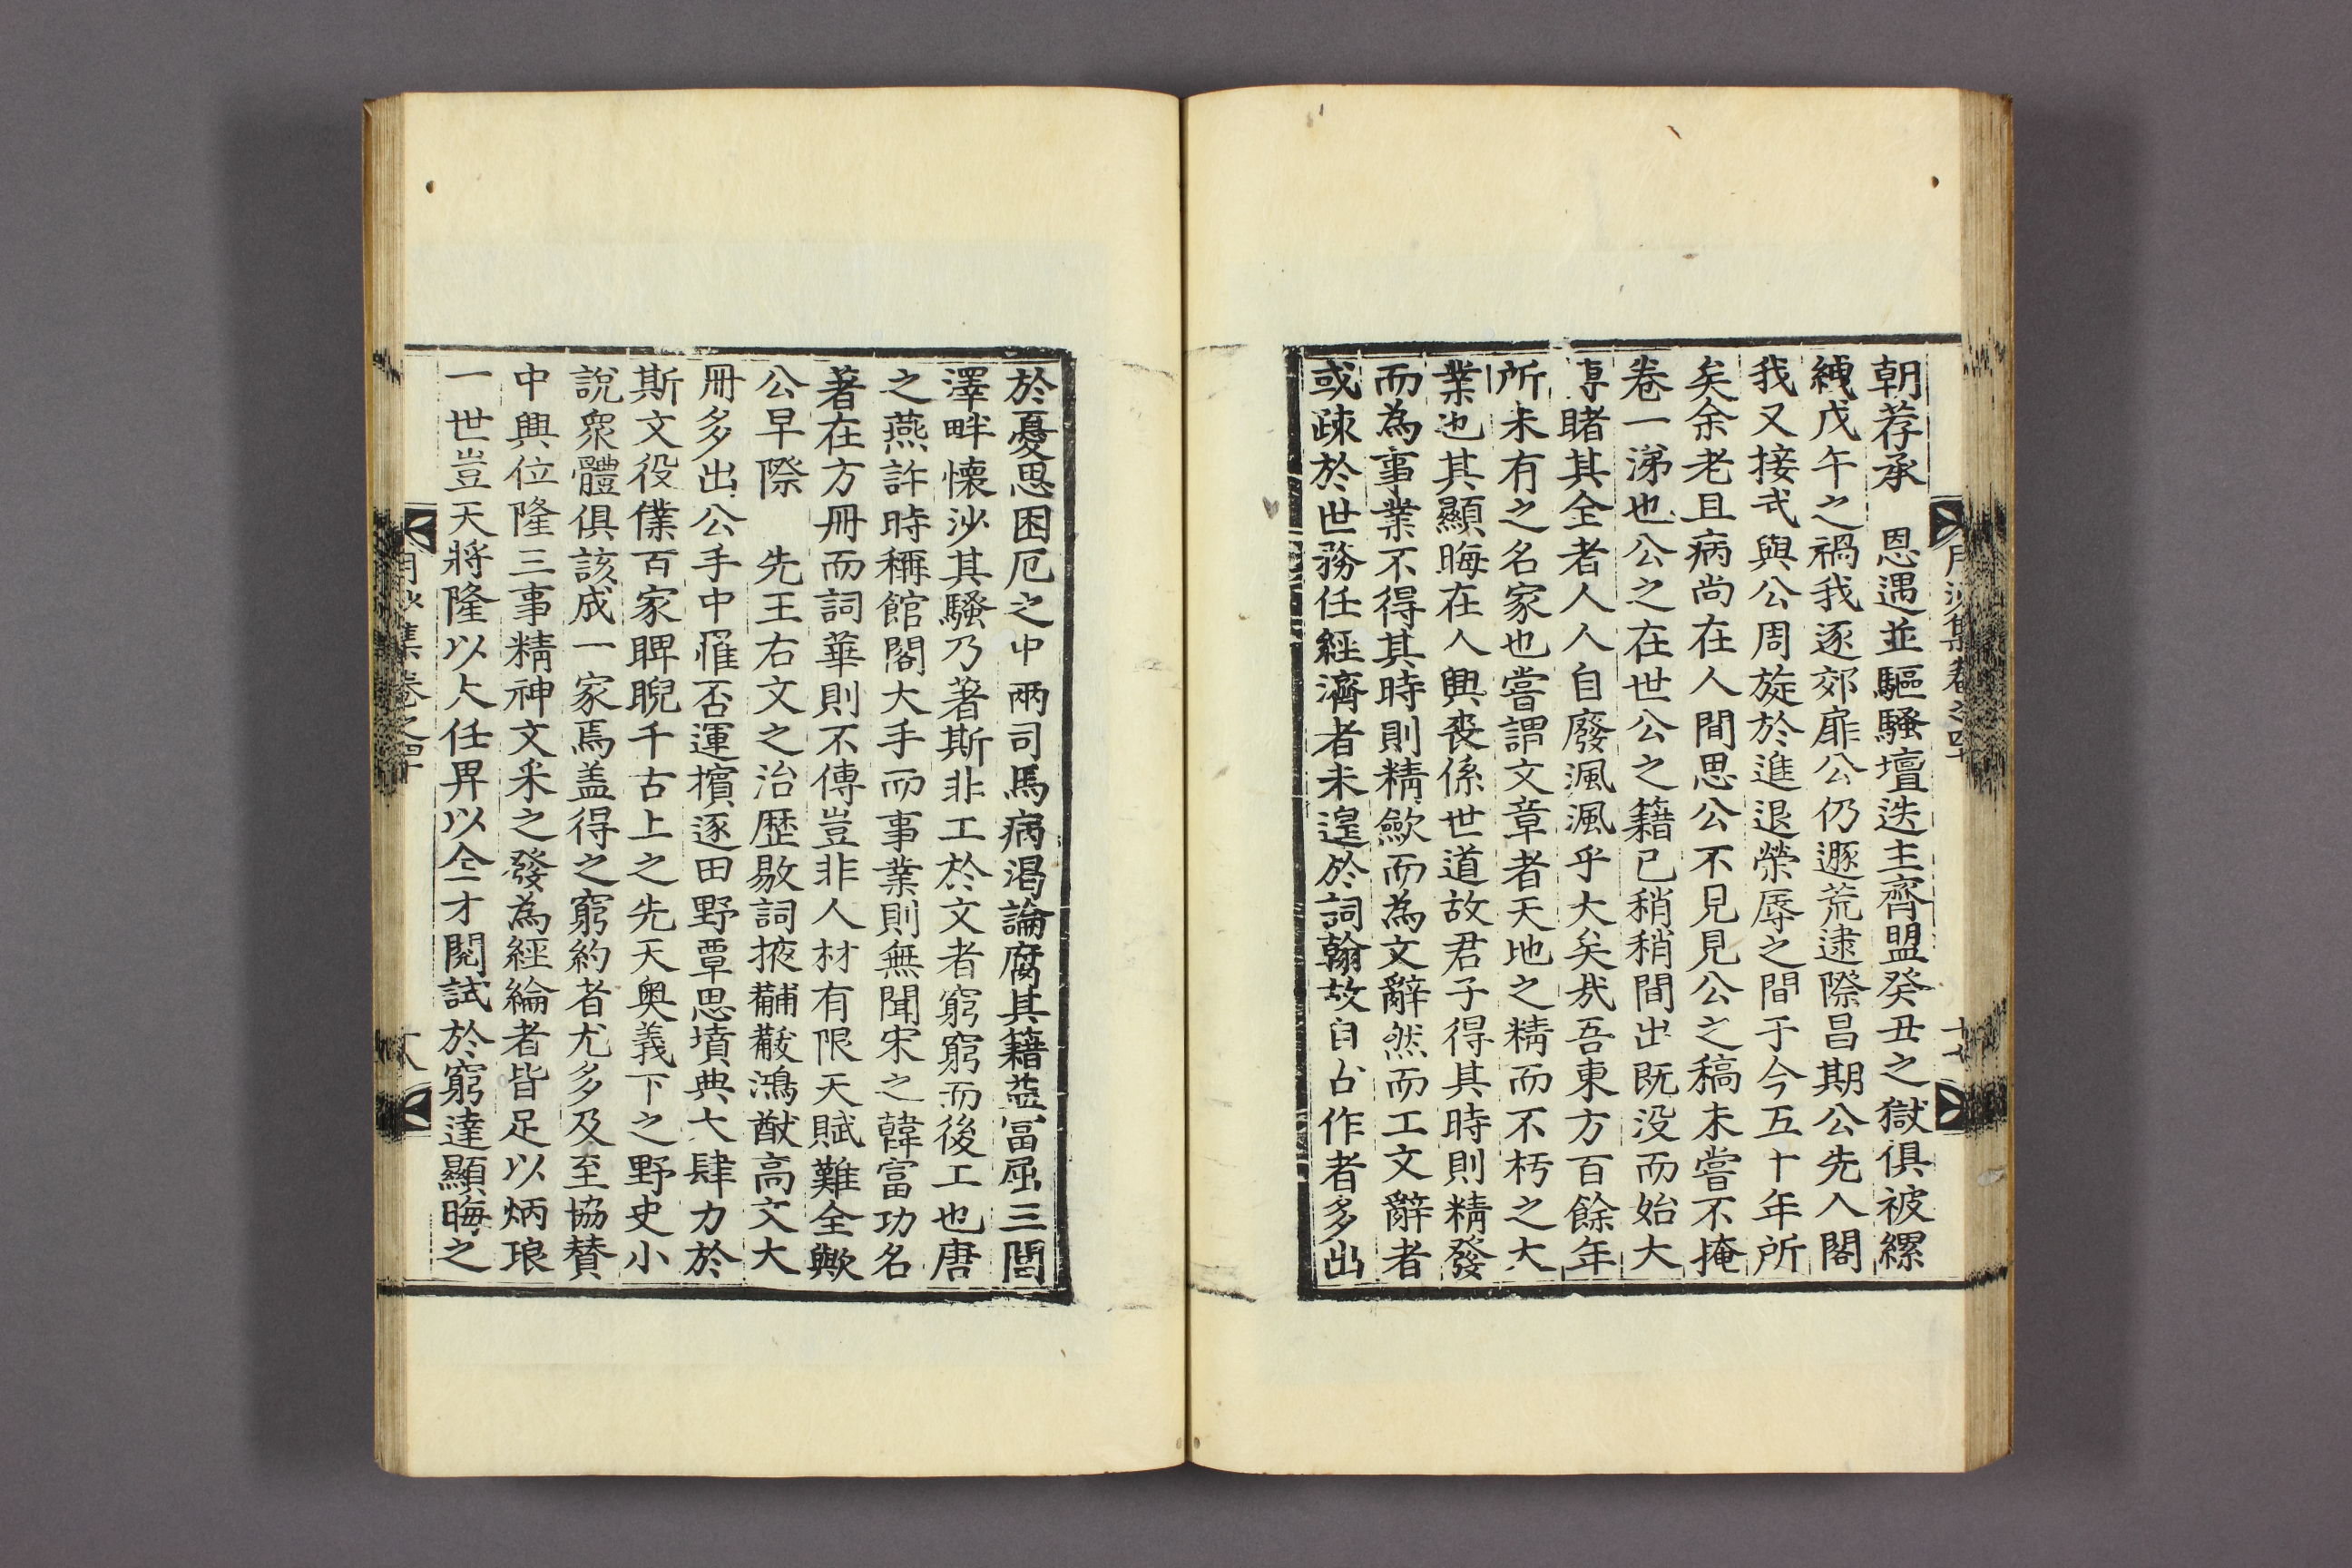 月沙集卷之四十
十七
朝荐承　恩遇並驅騷壇迭主齊盟癸丑之獄俱被縲
縛戊午之禍我逐郊扉公仍遯荒逮際昌期公先入閤
我又接武與公周旋於進退榮辱之間于今五十年所
矣余老且病尚在人間思公不見見公之稿未嘗不掩
卷一涕也公之在世公之籍已稍稍間出既没而始大
專睹其全者人人自廢渢渢乎大矣㢤吾東方百餘年
所未有之名家也嘗謂文章者天地之精而不朽之大
業也其顯晦在人興喪係世道故君子得其時則精發
而為事業不得其時則精歛而為文辭然而工文辭者
或疎於世務任經濟者未遑於詞翰故自古作者多出
於憂思困厄之中兩司馬病渴論腐其籍益富屈三閭
澤畔懷沙其騷乃著斯非工於文者窮窮而後工也唐
之燕許時稱館閣大手而事業則無聞宋之韓富功名
著在方冊而詞華則不傳豈非人材有限天賦難全歟
公早際　先王右文之治歷敭詞掖黼黻鴻猷高文大
冊多出公手中罹否運擯逐田野覃思墳典大肆力於
斯文役僕百家睥睨千古上之先天奧義下之野史小
說衆體俱該成一家焉盖得之窮約者尤多及至協賛
中興位隆三事精神文采之發為經綸者皆足以炳琅
一世豈天將隆以大任畀以全才閱試於窮達顯晦之
月沙集卷之四十
十八